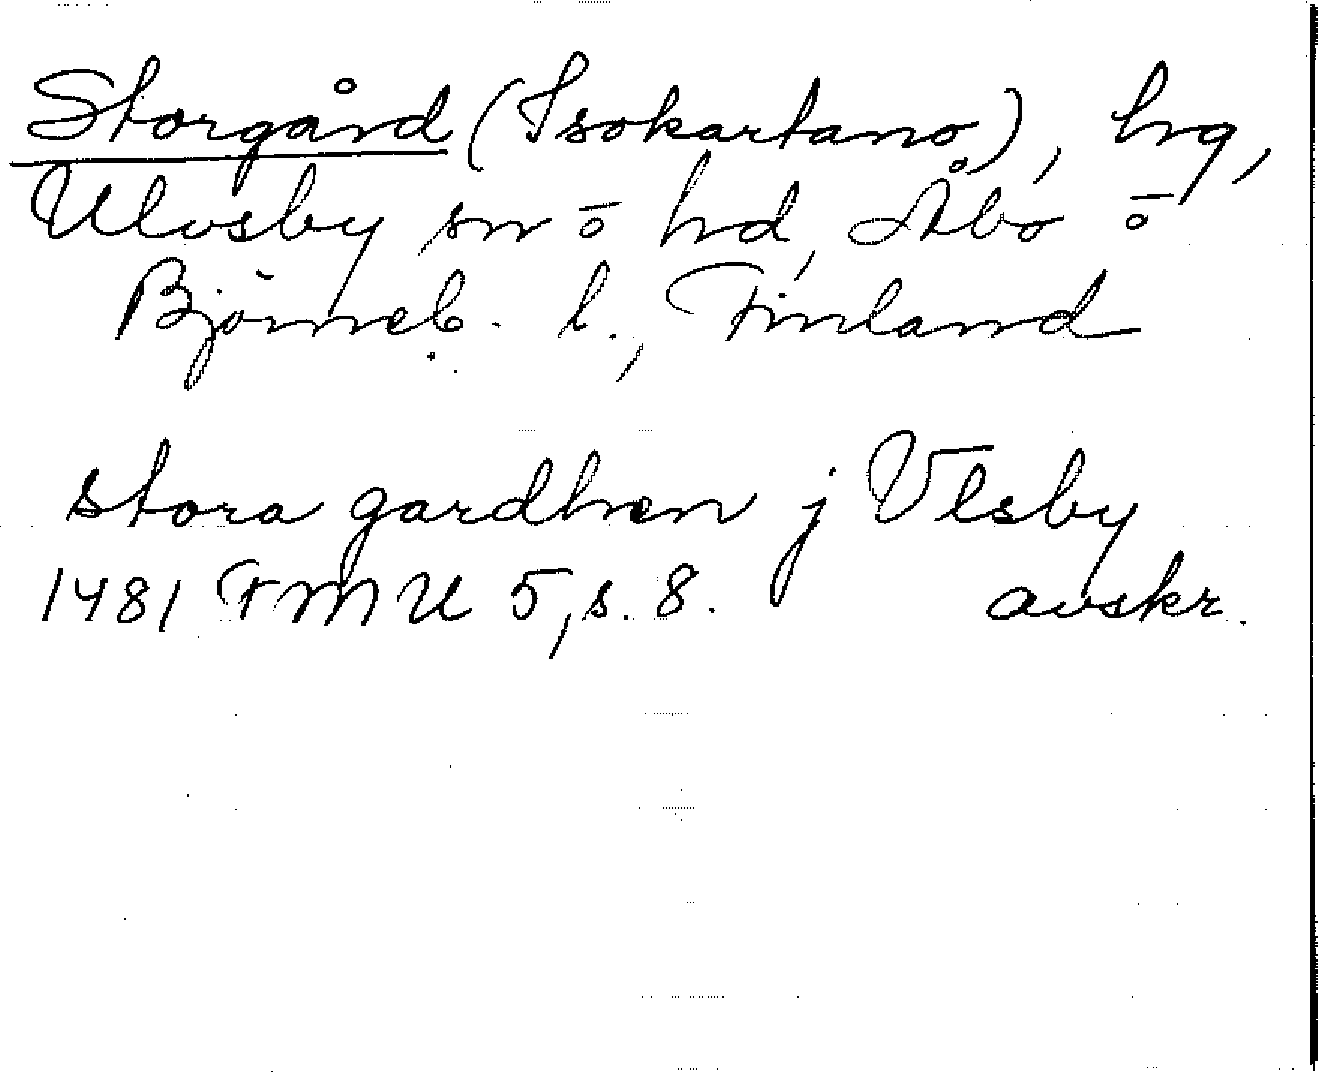 Storgård (Isokartano), hrg,
Ulvsby sn o hd, Åbo o
Björneb. l., Finland
stora gardhen j Vlsby
1481 FMU 5, s. 8. avskr.